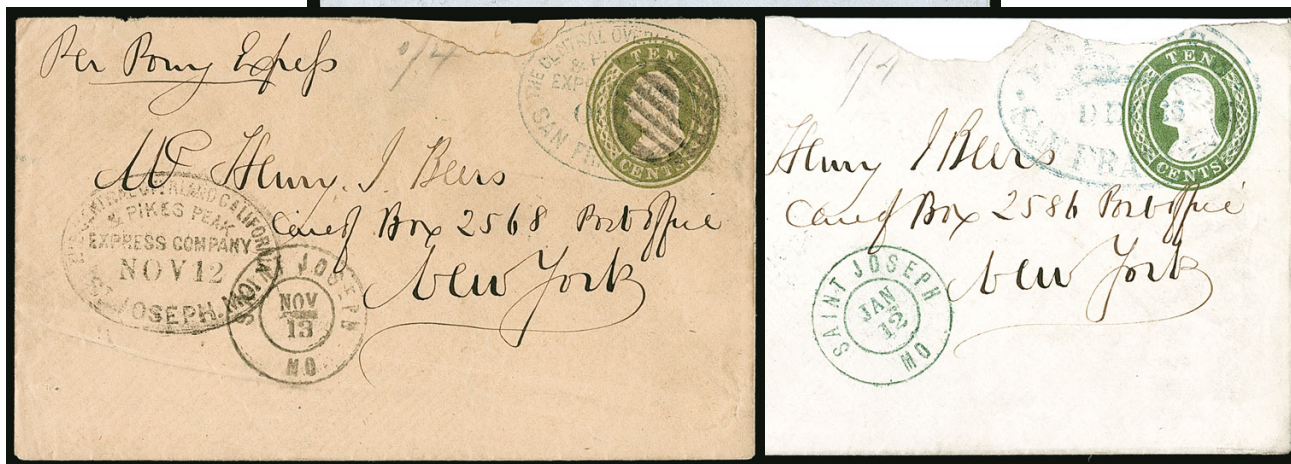 Per Pony Express
1/4
THE CENTRAL OVERL
EXP
SAN FR
TEN
CENTS
Mr Henry. J. Beers
Care of Box 2568 Post Office
New York
THE CENTRAL OVERLAND CALIFORNIA
& PIKES PEAK
EXPRESS COMPANY
NOV 12
ST JOSEPH. MO.
JOSEPH
NOV
13
MO
1/4
TEN
CENTS
SAN FRA
Henry J Beers
Care of Box 2586 Post Office
New York
SAINT JOSEPH
JAN
12
MO